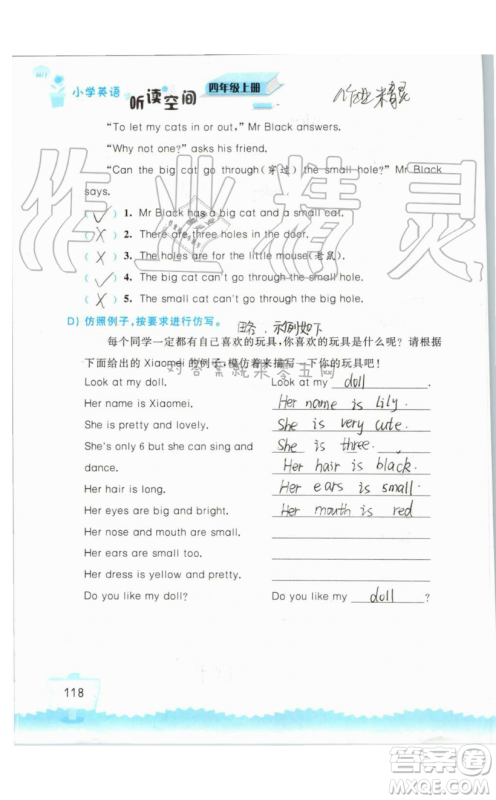 小学英语
听读空间
四年级上册
作业精灵
"To let my cats in or out," Mr Black answers.
"Why not one?" asks his friend.
"Can the big cat go through(穿过) the small hole?" Mr Black
says.
( ✓ ) 1. Mr Black has a big cat and a small cat.
( X ) 2. There are three holes in the door.
( X ) 3. The holes are for the little mouse(老鼠).
( ✓ ) 4. The big cat can't go through the small hole.
( X ) 5. The small cat can't go through the big hole.
D) 仿照例子,按要求进行仿写。 略.示例如下
每个同学一定都有自己喜欢的玩具,你喜欢的玩具是什么呢?请根据
下面给出的 Xiaomei 的例子,模仿着来描写一下你的玩玩具吧!
对答案就来零五网
Look at my doll. Look at my doll .
Her name is Xiaomei. Her name is Lily.
She is pretty and lovely. She is very cute.
She's only 6 but she can sing and She is three.
dance. Her hair is black.
Her hair is long. Her ears is small.
Her eyes are big and bright. Her mouth is red
Her nose and mouth are small.
Her ears are small too.
Her dress is yellow and pretty.
Do you like my doll? Do you like my doll ?
118
作业精灵
答案圈
MXQE.COM